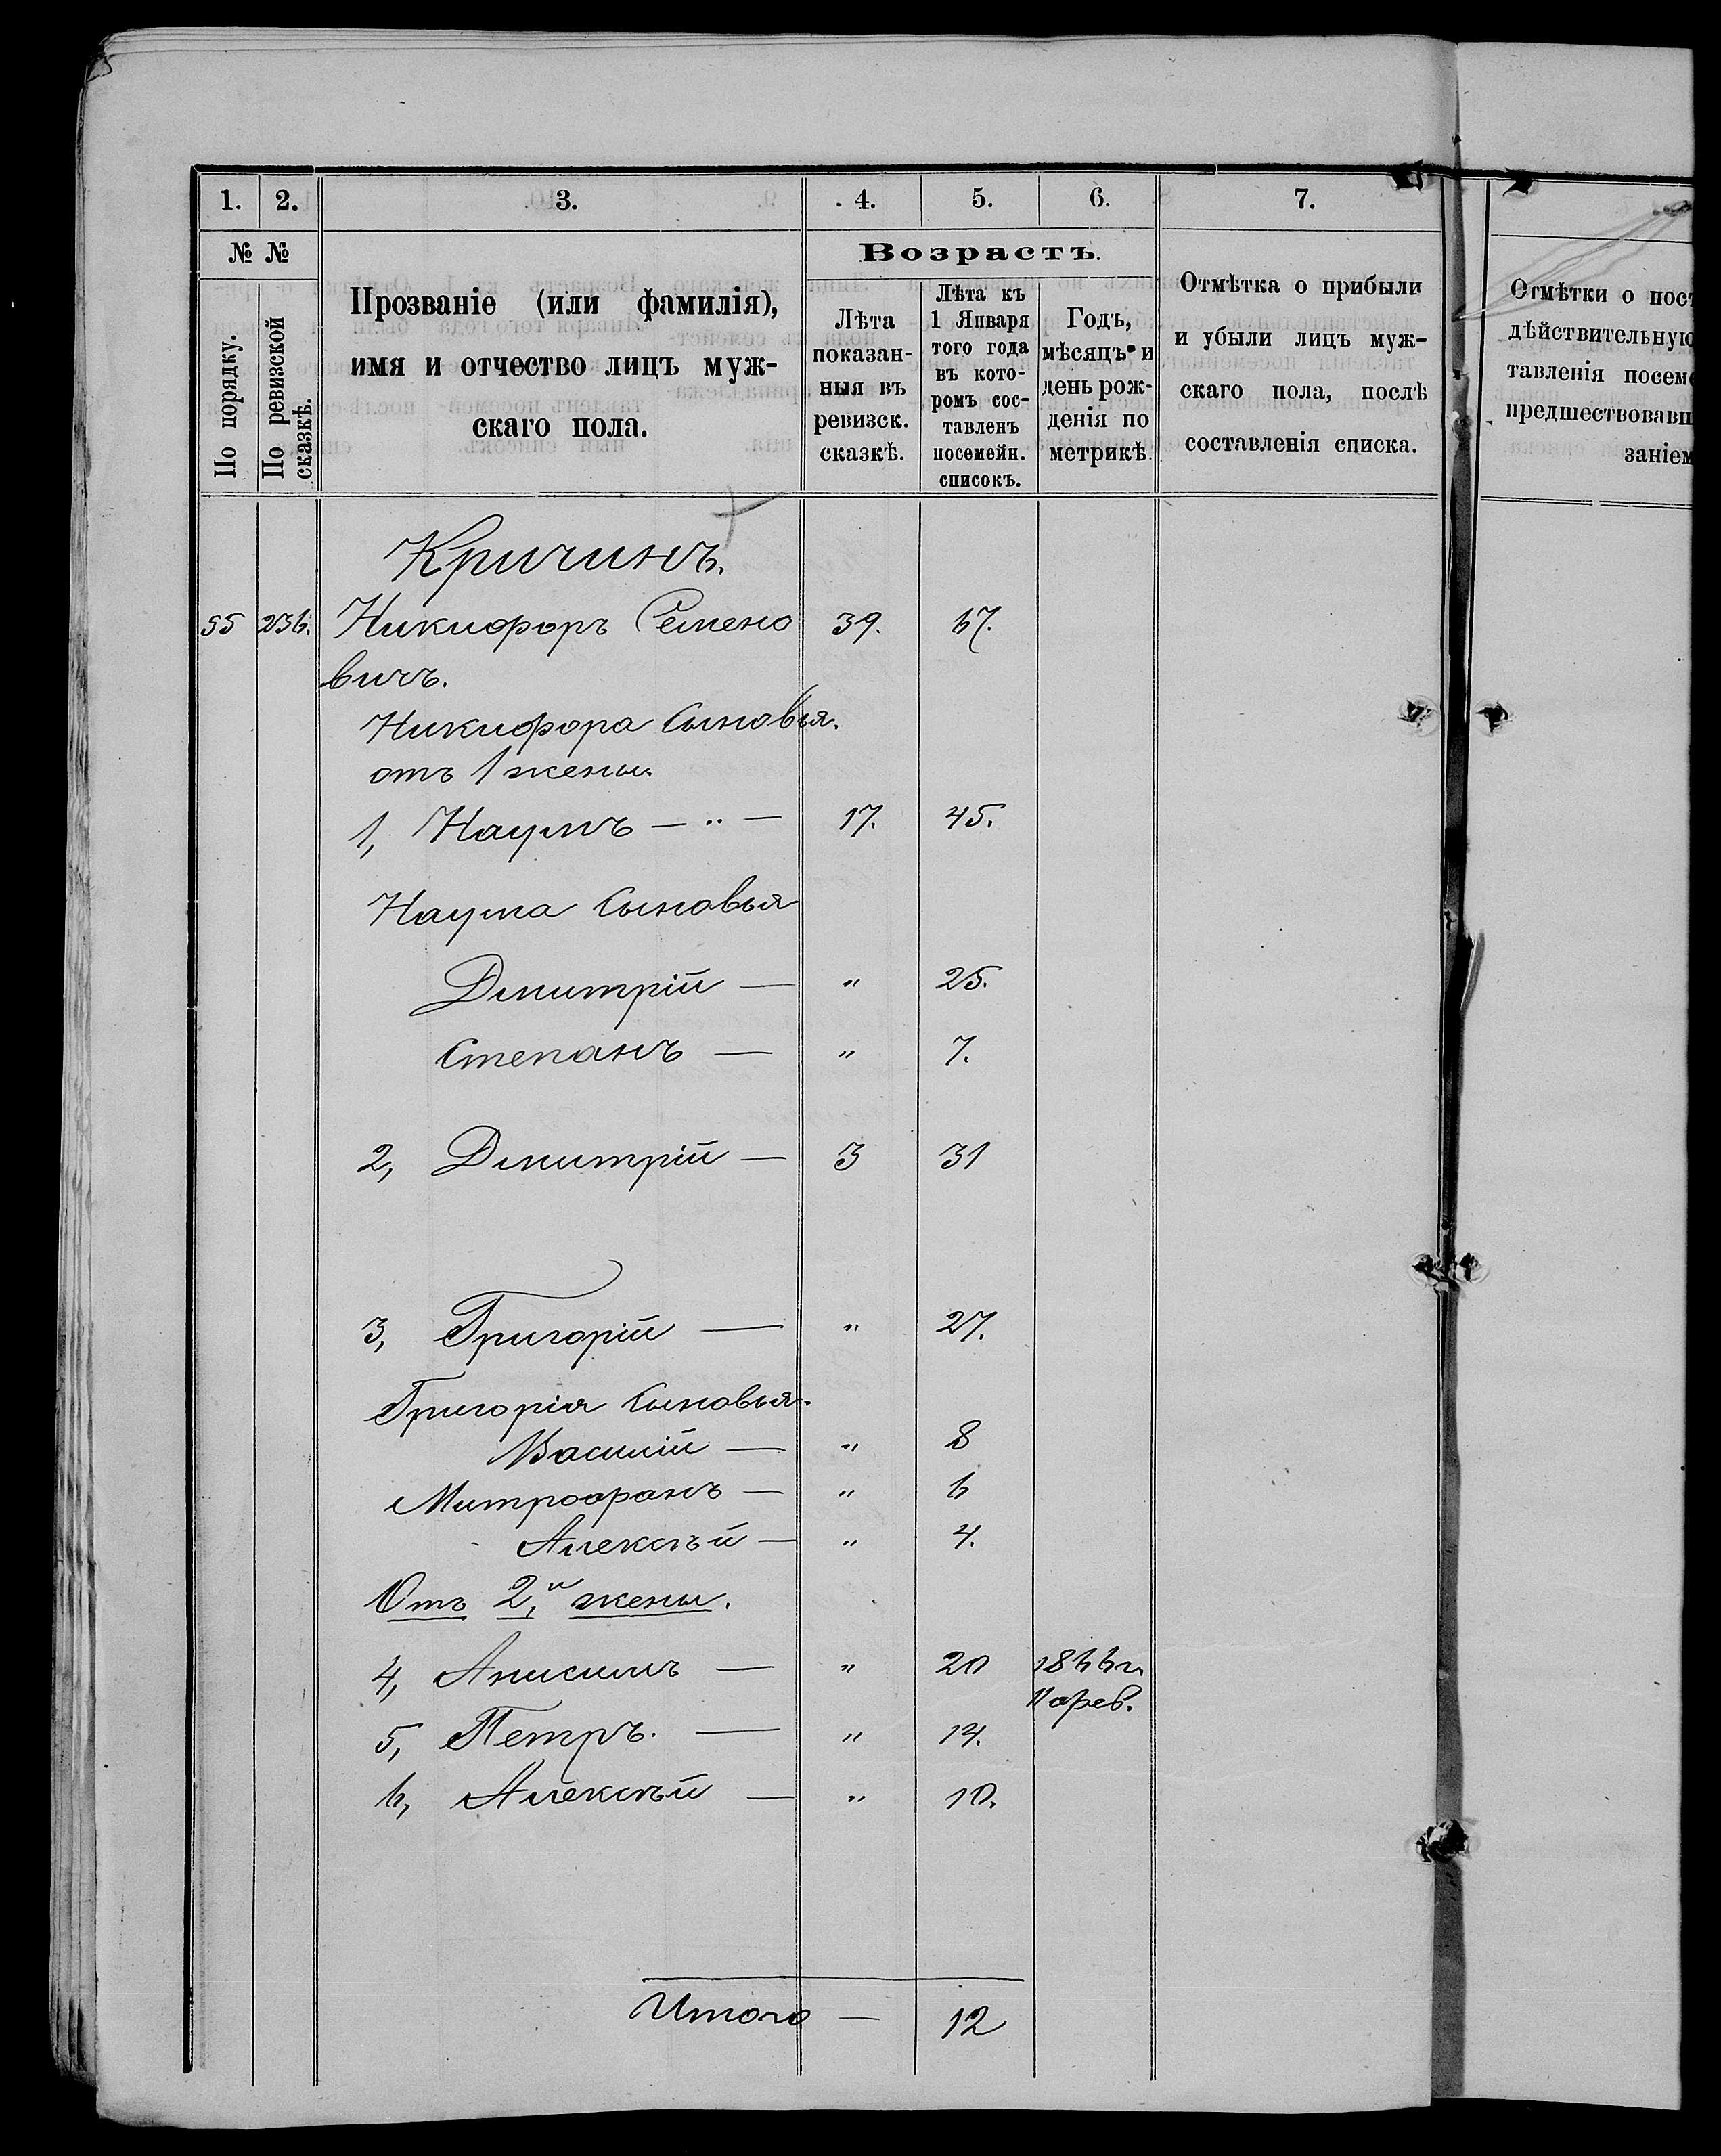 1. 2. 3. 4. 5. 6. 7.
№ №
По порядку.
По ревизской сказкѣ.
Прозваніе (или фамилія),
имя и отчество лицъ муж-
скаго пола.
Возрастъ.
Лѣта
показан-
ныя въ
ревизск.
сказкѣ.
Лѣта къ
1 Января
того года
въ кото-
ромъ сос-
тавленъ
посемейн.
списокъ.
Годъ,
мѣсяцъ и
день рож-
денія по
метрикѣ.
Отмѣтка о прибыли
и убыли лицъ муж-
скаго пола, послѣ
составленія списка.
Отмѣтки о пост
дѣйствительную
тавленія посеме
предшествовавш
заніем
Кричинъ.
55 236. Никифоръ Семено 39. 67.
вичъ.
Никифора Сыновья.
отъ 1 жены.
1, Наумъ — " — 17. 45.
Наума Сыновья
Дмитрій — " 25.
Степанъ — " 7.
2, Дмитрій — 3 31
3, Григорій — " 27.
Григорія Сыновья.
Василій — " 8
Митрофанъ — " 6
Алексѣй — " 4.
Отъ 2й жены.
4, Анисимъ — " 20 1866 г.
11 фев.
5, Петръ. — " 14.
6, Алексѣй — " 10.
Итого — 12